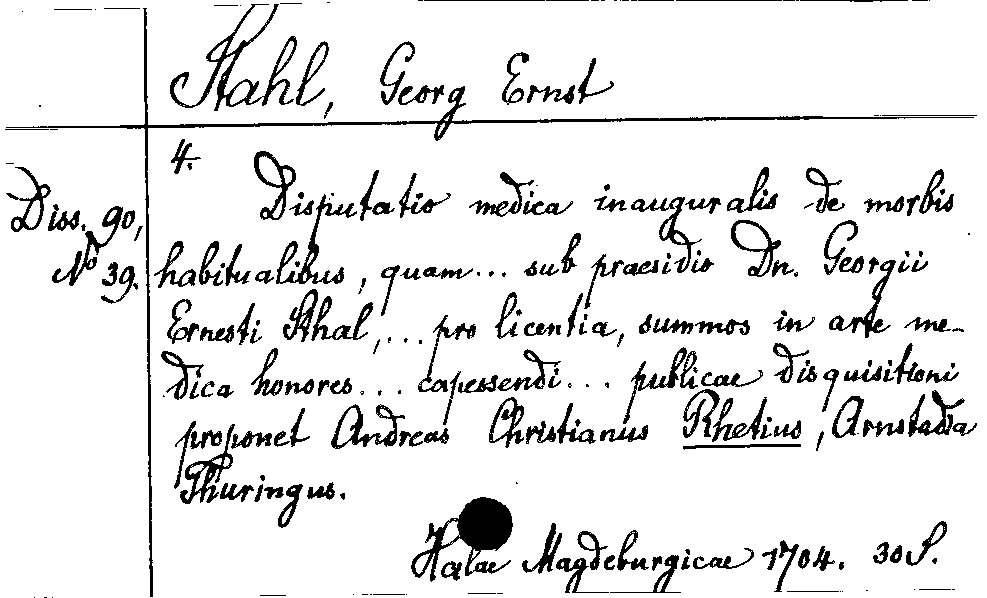 Stahl, Georg Ernst
4.
Diss. 90,
No 39.
Disputatio medica inauguralis de morbis
habitualibus, quam... sub praesidio Dn. Georgii
Ernesti Sthal,... pro licentia, summos in arte me-
dica honores... capessendi... publicae disquisitioni
proponet Andreas Christianus Rhetius, Arnstadia
Thuringus.
Halae Magdeburgicae 1704. 30 S.